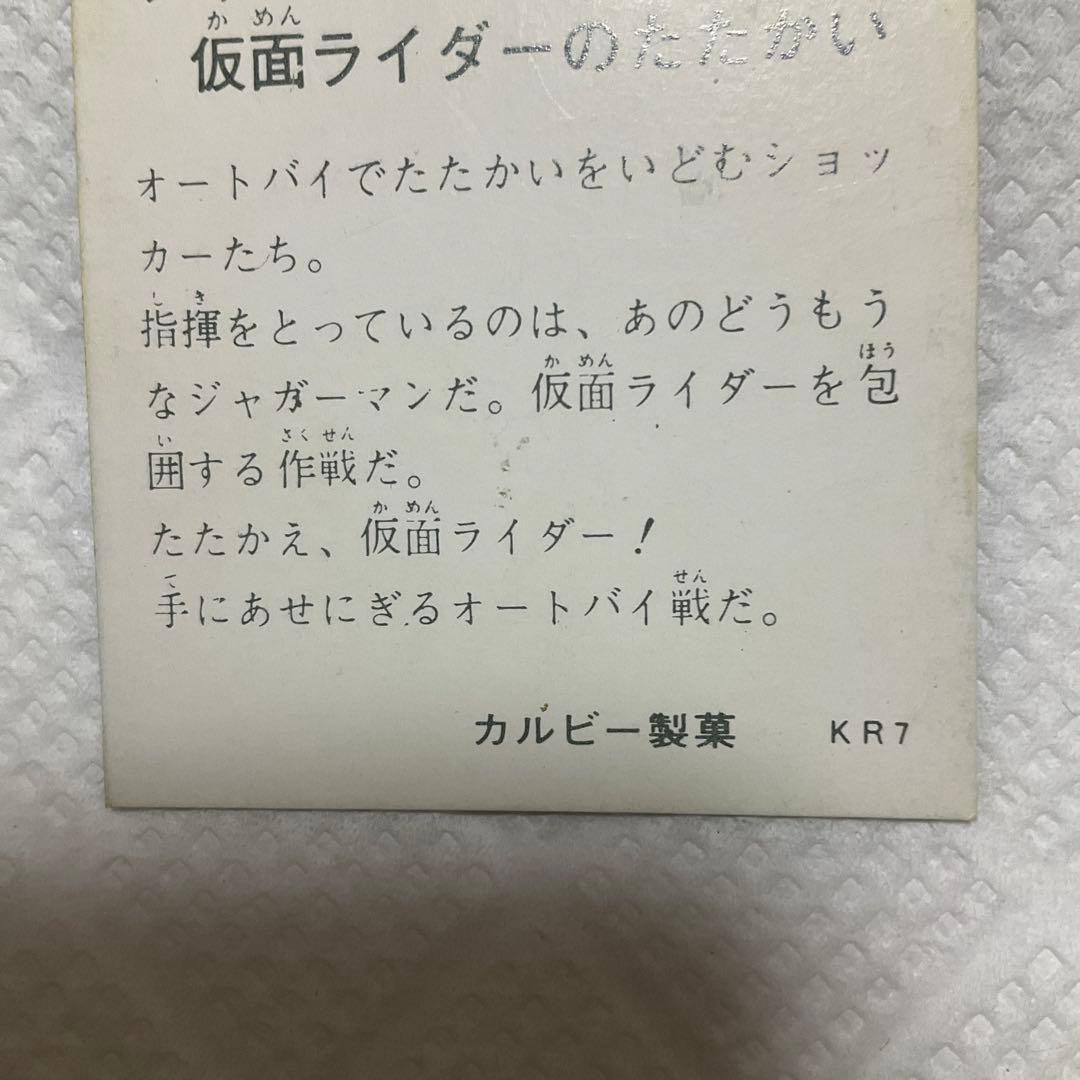 仮面ライダーのたたかい
オートバイでたたかいをいどむショッ
カーたち。
指揮をとっているのは、あのどうもう
なジャガーマンだ。仮面ライダーを包
囲する作戦だ。
たたかえ、仮面ライダー！
手にあせにぎるオートバイ戦だ。
カルビー製菓 KR7